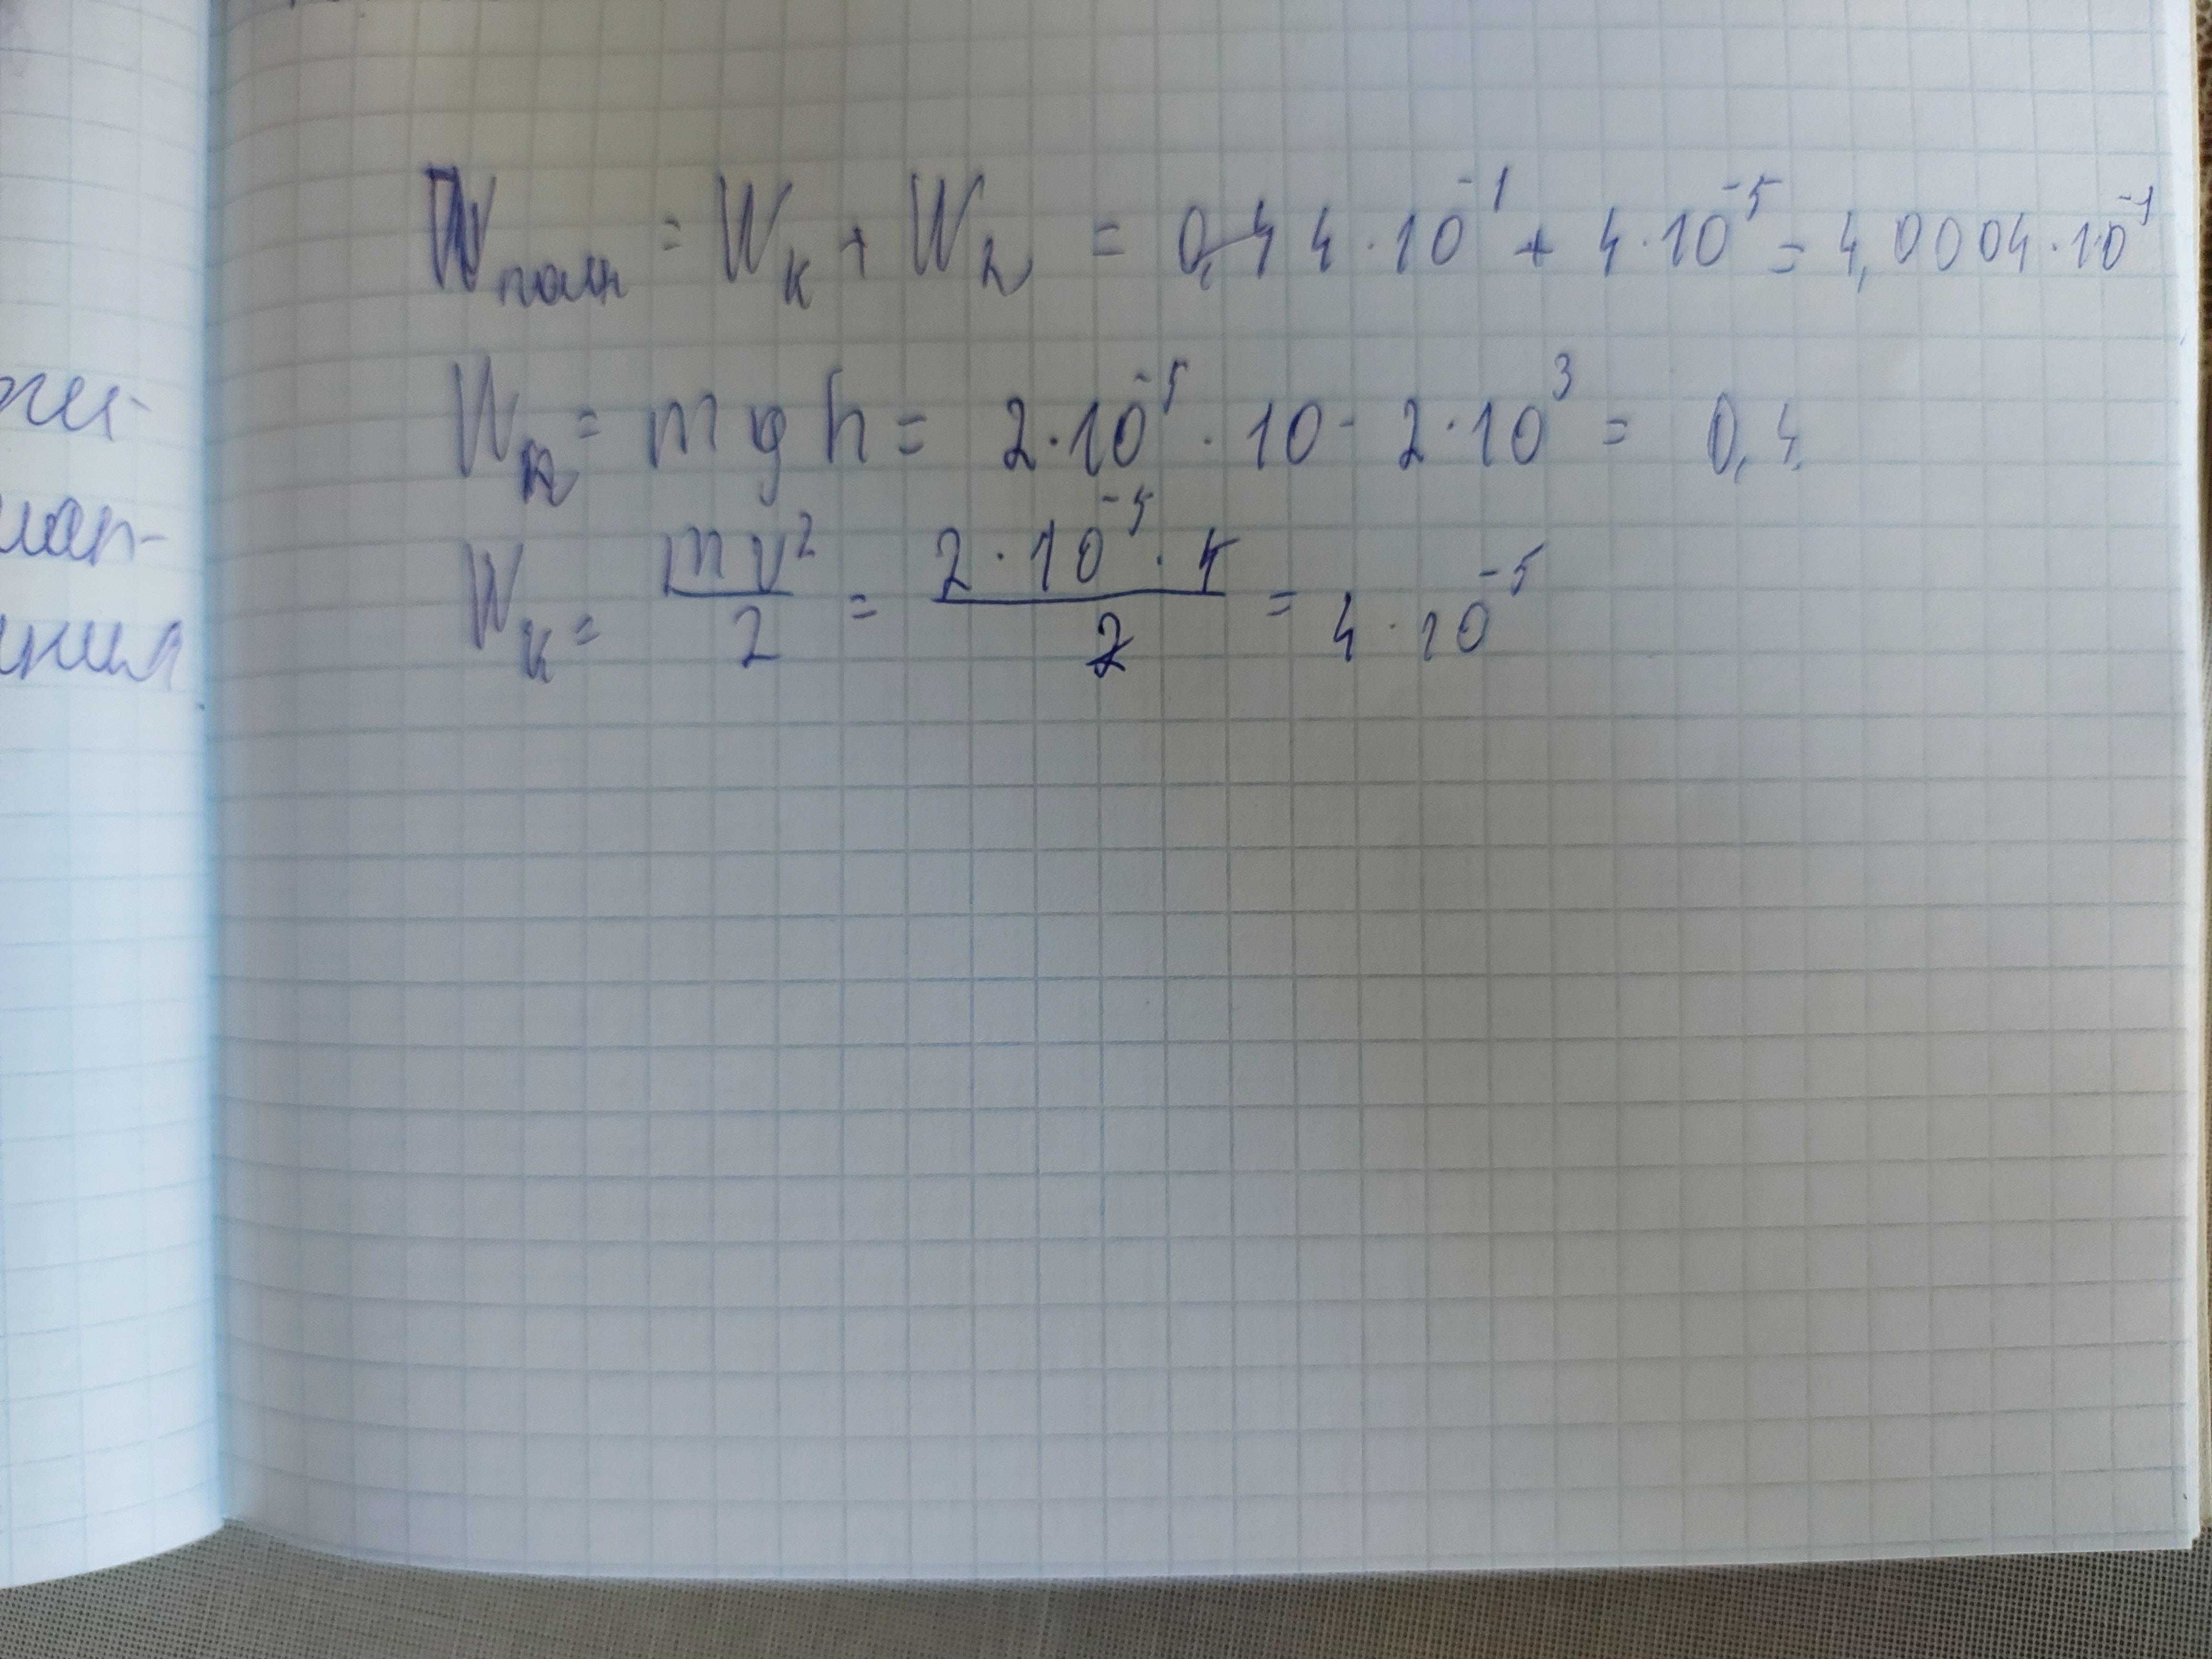 W полн = W к + W п = 4·10⁻¹ + 4·10⁻⁵ = 4,0004·10⁻¹
W п = mgh = 2·10⁻⁵ · 10 · 2·10³ = 0,4
W к = mv²/2 = 2·10⁻⁵·4/2 = 4·10⁻⁵